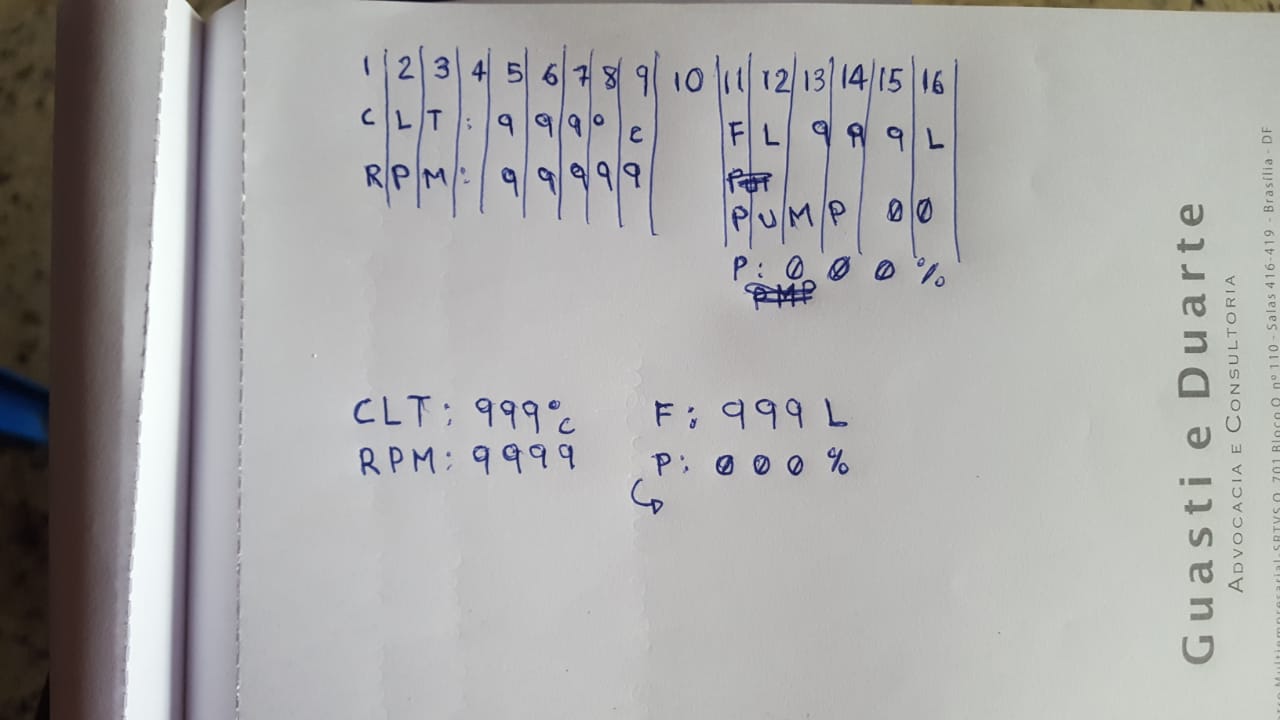 1 2 3 4 5 6 7 8 9 10 11 12 13 14 15 16
C L T : 9 9 9 ° c F L 9 9 9 L
R P M : 9 9 9 9 9
P U M P 0 0
P: 0 0 0 %
CLT: 999°c F: 999 L
RPM: 9999 P: 000 %
Guasti e Duarte
ADVOCACIA E CONSULTORIA
701 Bloco O nº 110 - Salas 416-419 - Brasília - DF